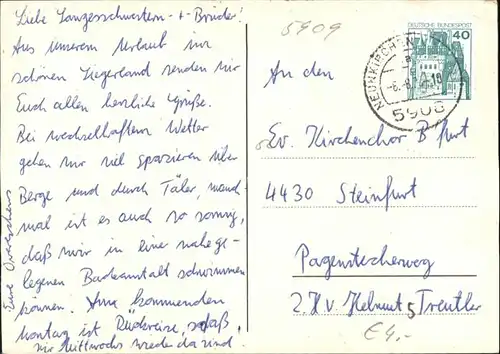 Liebe Sangesschwestern + Brüder!
Aus unserem Urlaub im
schönen Siegerland senden wir
Euch allen herzliche Grüße.
Bei wechselhaftem Wetter
gehen wir viel spazieren über
Berge und durch Täler, manch-
mal ist es auch so sonnig,
daß wir in eine nahege-
legenen Badeanstalt schwimmen
können. Am kommenden
Montag ist Rückreise, sodaß
wir Mittwochs wieder da sind.
Eure
5909
DEUTSCHE BUNDESPOST
40
NEUNKIRCHEN
5908
An den
Ev. Kirchenchor B'furt
4430 Steinfurt
Pagenstecherweg
z. H. v. Helmut Treutler
5
€ 4,-